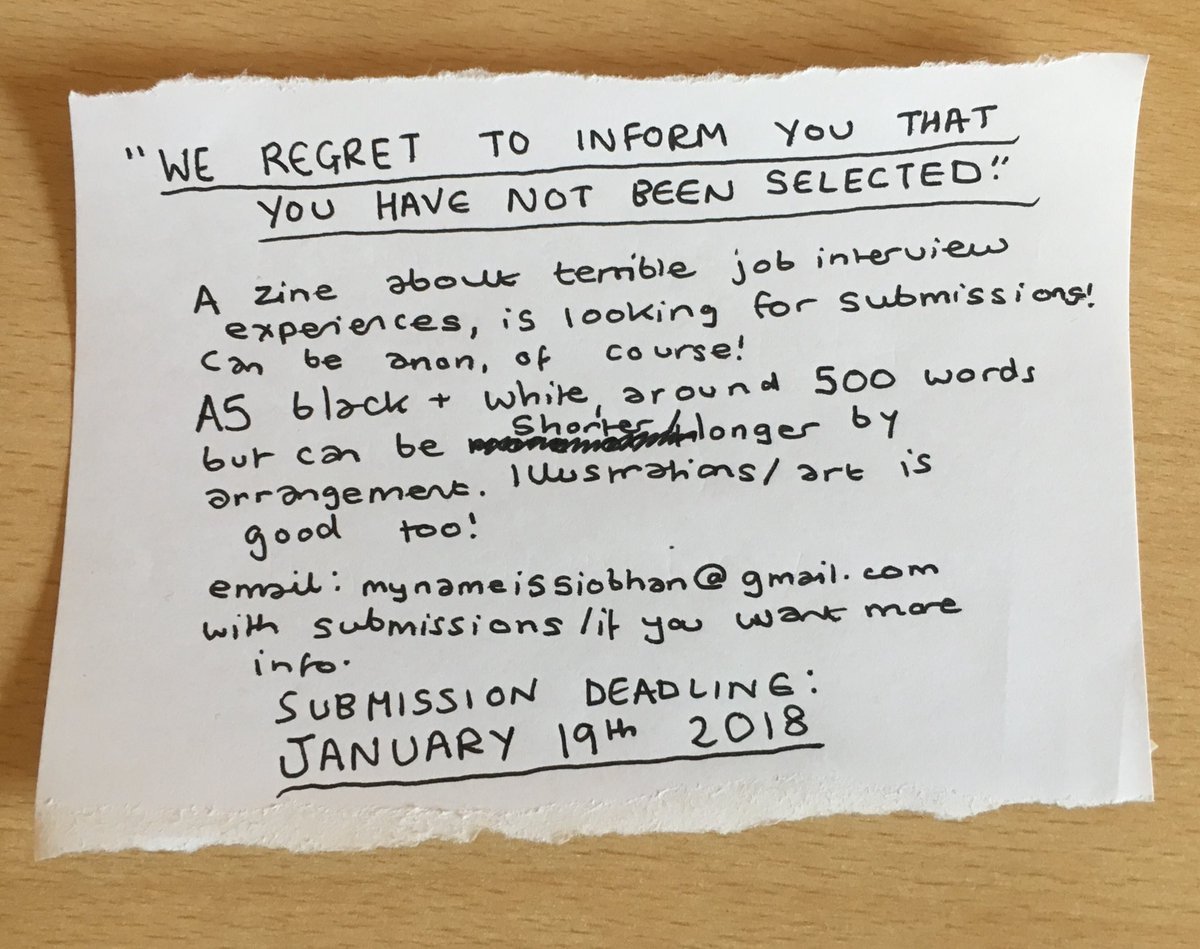 "WE REGRET TO INFORM YOU THAT
YOU HAVE NOT BEEN SELECTED."
A zine about terrible job interview
experiences, is looking for submissions!
can be anon, of course!
A5 black + white, around 500 words
but can be shorter/longer by
arrangement. Illustrations/art is
good too!
email: mynameissiobhan@gmail.com
with submissions/if you want more
info.
SUBMISSION DEADLINE:
JANUARY 19th 2018